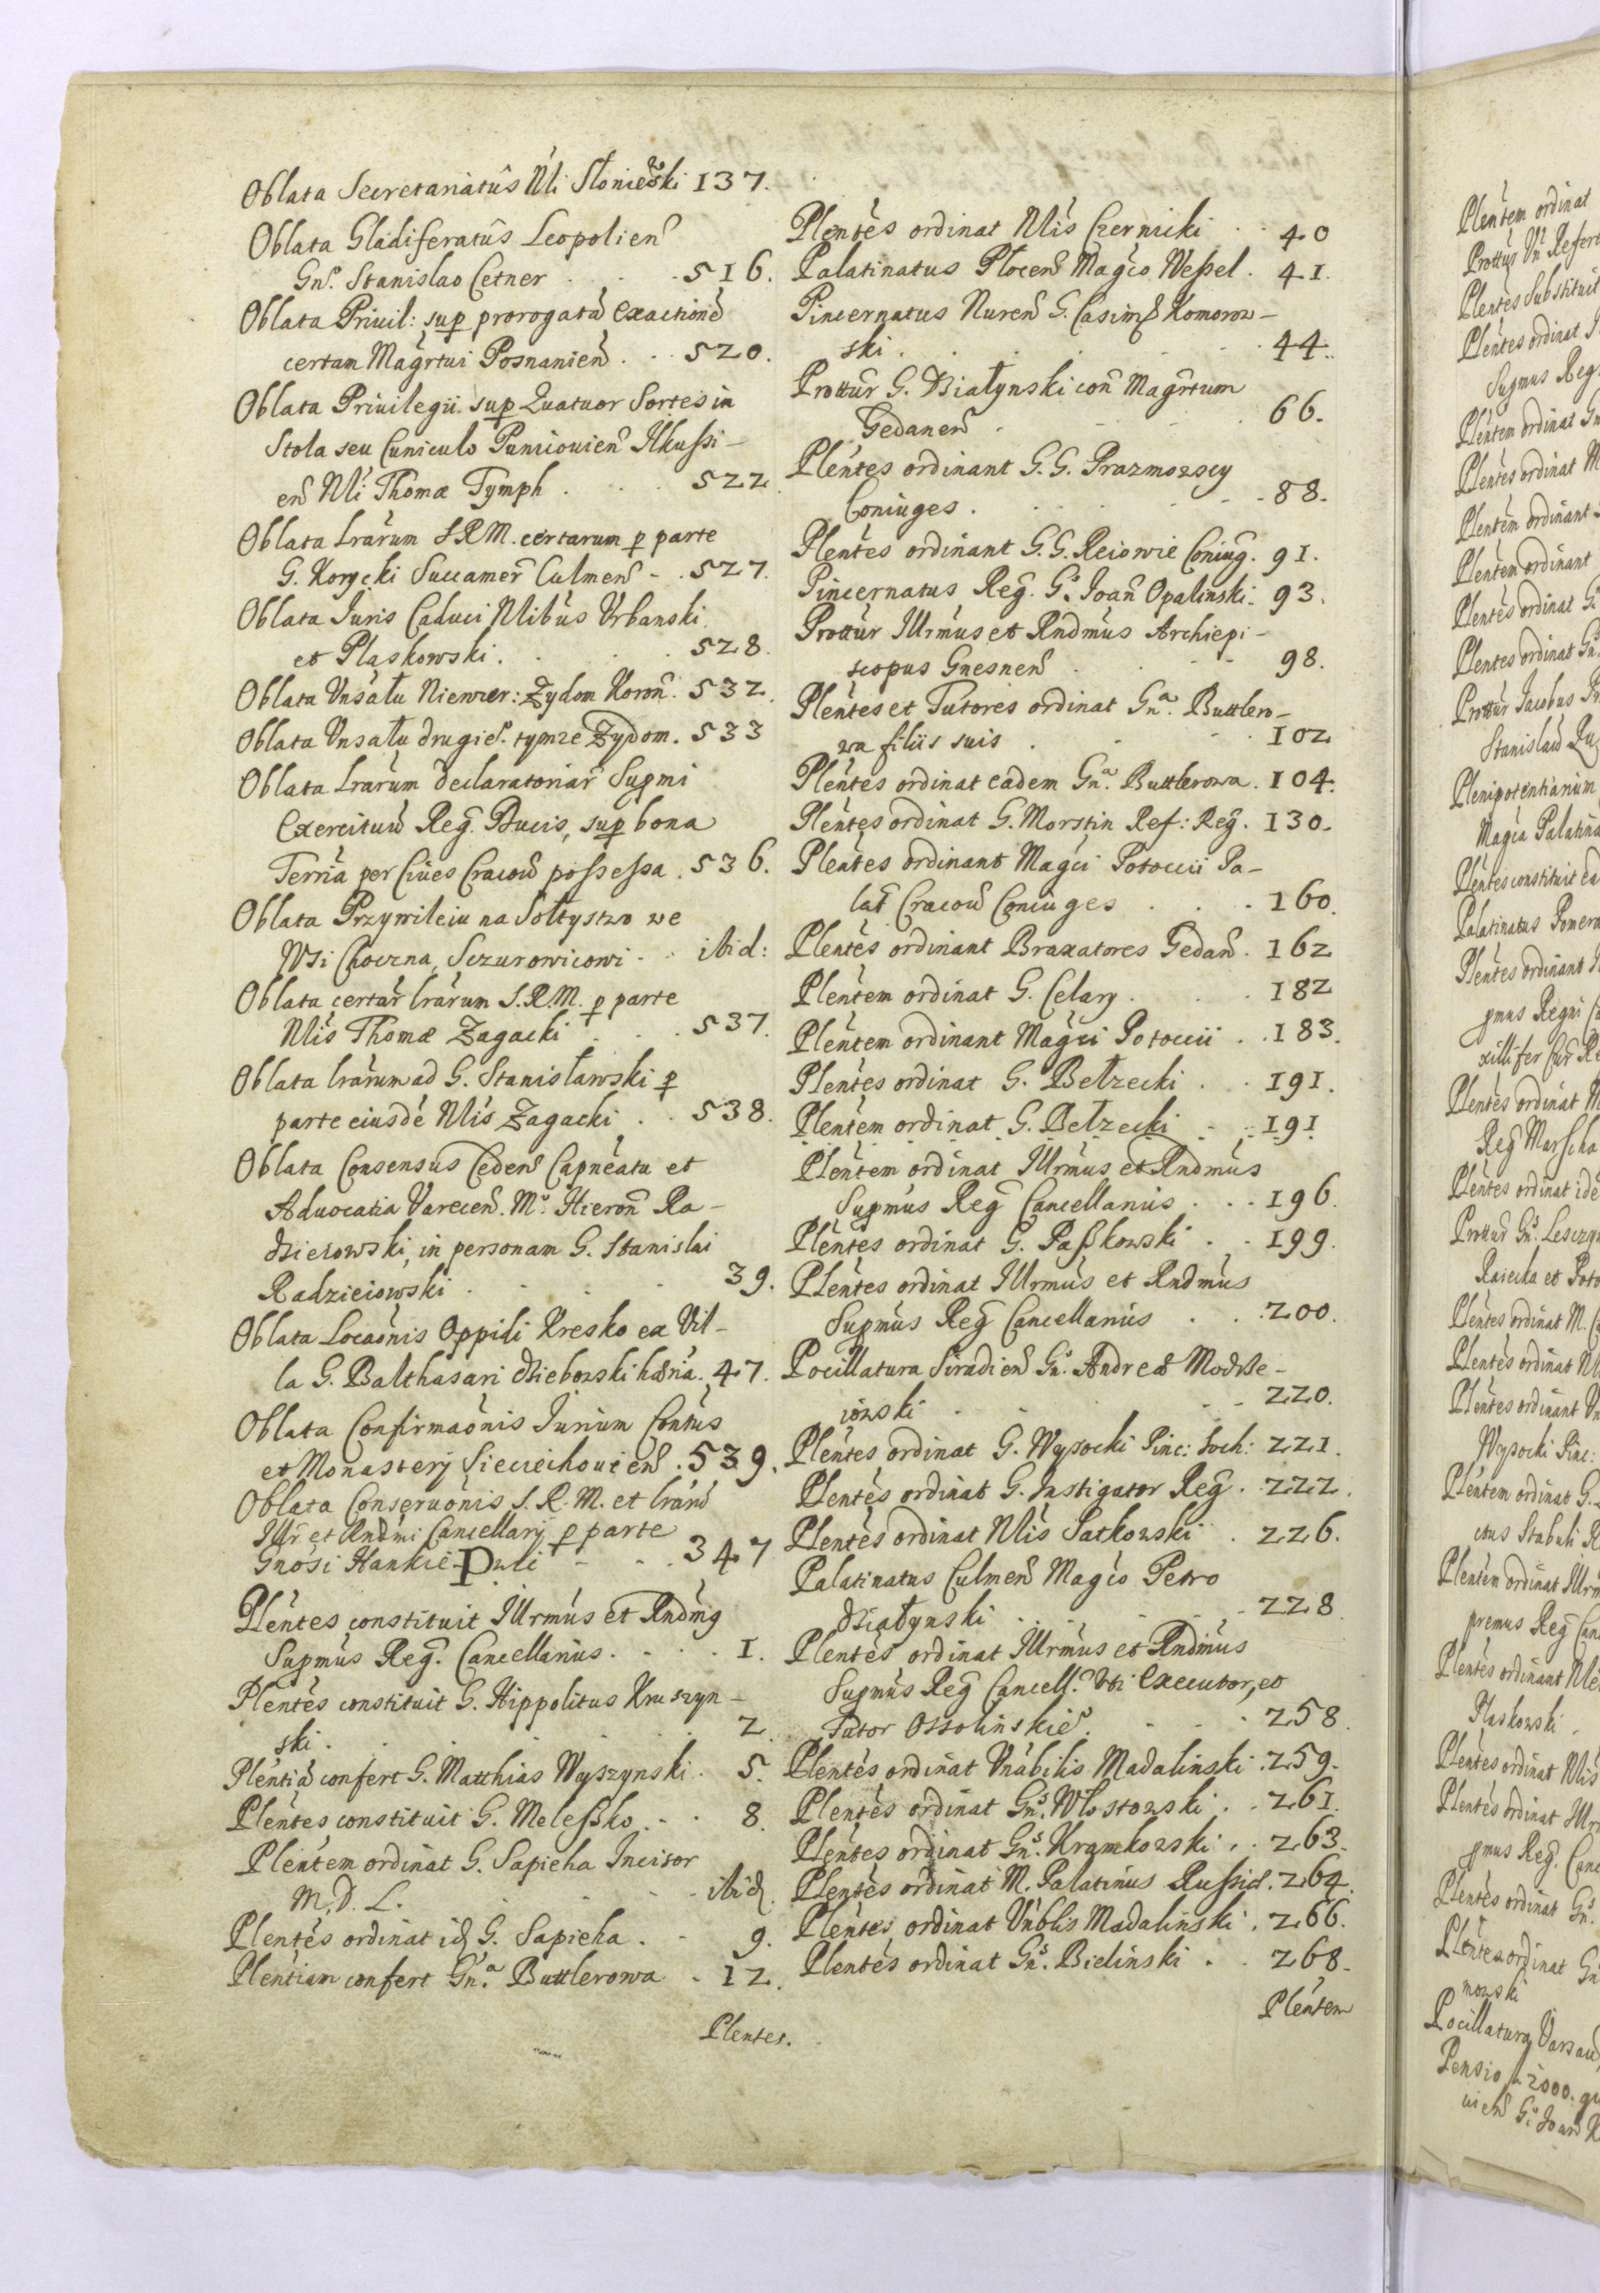 Oblata Secretariatûs Nli Słoniewski 137.
Oblata Gladiferatûs Leopolien
Gn. Stanislao Cetner . . . 516.
Oblata Privil: sup prorogatã exactionẽ
certam Magrtui Posnanien . . 520.
Oblata Priuilegii sup Quatuor Sortes in
Stola seu Cuniculo Ponniouien Ilkussi-
en Nli Thomæ Tymph . . . 522
Oblata lrarum S.R.M. certarum p parte
G. Korycki Succamer Culmen - . 527.
Oblata Iuris Caduci Nlibus Vrbanski
et Plaskowski . . . . 528.
Oblata Vnsału Niewier: Zydom Koron. 532.
Oblata Vnsału drugie. tymze Zydom. 533
Oblata lrarum declaratoriar Supmi
Exercituũ Reg. Ducis, sup bona
Terria per Ciues Cracou possessa . 536.
Oblata Przywileiu na Sołtystwo we
Wsi Choczna, Sczurowicowi - . ibid:
Oblata certar lrarum S.R.M. p parte
Nlis Thomæ Zagacki . . . 537.
Oblata lrarum ad G. Stanisławski p
parte eiusdẽ Nlis Zagacki . . 538.
Oblata Consensus Ceden Capneatu et
Aduocatia Varecen. Mo. Hieron Ra-
dzieiowski, in personam G. Stanislai
Radzieiowski . . . . 39.
Oblata Locaonis Oppili Kresko ex Vil-
la G. Balthasari dziebowski hæria. 47.
Oblata Confirmaonis Iurium Contus
et Monastery Sieciechouien . 539.
Oblata Conseruonis S.R.M. et lrarũ
Illr et Rndmi Cancellarij p parte
Gnosi Hankie Pwli - - . 347
Plentes constituit Illrmus et Rndmg
Supmus Reg. Cancellarius . . . . 1.
Plentes constituit G. Hippolitus Kruszyn-
ski . . . . . . 2.
Plentiã confert G. Matthias Wyszynski . 5.
Plentes constituit G. Meleszko . . . 8.
Plentem ordinat G. Sapieha Incisor
M.D.L. . . . . . ibid.
Plentes ordinat id G. Sapieha . . 9.
Plentiam confert Gna. Buttlerowa . 12.
Plentes.
Plentes ordinat Nlis Czernicki . . 40
Palatinatus Plocen Magco Wessel . 41.
Pincernatus Nuren G. Casim Komorow-
ski . . . . . . 44.
Prottur G. Działynski con Magrtum
Gedanen . . . . . 66.
Plentes ordinant G.G. Prazmowscy
Coniuges . . . . . 88.
Plentes ordinant G.G. Reiowie Coniug. 91.
Pincernatus Reg. Go. Ioan Opalinski . 93.
Prottur Illrmus et Rndmus Archiepi-
scopus Gnesnen . . . . 98.
Plentes et Tutores ordinat Gna. Buttlero-
wa filiis suis . . . . 102
Plentes ordinat eadem Gna. Buttlerowa . 104.
Plentes ordinat G. Morstin Ref: Reg. 130.
Plentes ordinant Magci Potoccii Pa-
lat Cracou Coniuges . . . 160.
Plentes ordinant Braxatores Gedan . 162
Plentem ordinat G. Celary . . . 182
Plentem ordinant Magci Potoccii . . 183.
Plentes ordinat G. Bełzecki . . 191.
Plentem ordinat G. Bełzecki . . 191
Plentem ordinat Illrmus et Rndmus
Supmus Reg Cancellarius . . . 196.
Plentes ordinat G. Paszkowski . . 199.
Plentes ordinat Illrmus et Rndmus
Supmus Reg Cancellarius . . . 200.
Pocillatura Siradien Gn. Andreæ Modrze-
iowski . . . . . 220.
Plentes ordinat G. Wysocki Pinc: Soch: 221.
Plentes ordinat G. Instigator Reg . 222.
Plentes ordinat Nlis Satkowski . 226.
Palatinatus Culmen Magco Petro
Działynski . . . . . 228.
Plentes ordinat Illrmus et Rndmus
Supmus Reg Cancell. vti executor, et
Tutor Ossolinskie . . . 258.
Plentes ordinat Vnabilis Madalinski . 259.
Plentes ordinat Gns. Włostowski . . 261.
Plentes ordinat Gns. Kramkowski . . 263.
Plentes ordinat M. Palatinus Russiæ. 264.
Plentes ordinat Vnblis Madalinski . 266.
Plentes ordinat Gns. Bielinski . . 268.
Plentem
Plentem ordinat
Prottur Vn Refert
Plentes Substituit
Plentes ordinat
Supmus Reg
Plentem ordinat
Plentes ordinat M
Plentem ordinant
Plentem ordinant
Plentes ordinat G
Plentes ordinat Gn
Prottur Iacobus
Stanislaũ
Plenipotentiarium
Magca Palatina
Plentes constituit
Palatinatus Pomera
Plentes ordinant
pmus Regni
xillifer Cur Re
Plentes ordinat M
Reg Marscha
Plentes ordinat ide
Prottur Gns. Lesczy
Raiecka et Poto
Plentes ordinat M.
Plentes ordinat Nl
Plentes ordinant Vn
Wysocki Pinc:
Plentem ordinat G.
ctus Stabuli R
Plentem ordinat Illrm
premus Reg Can
Plentes ordinant Nl
Plaskowski .
Plentes ordinat Nlis
Plentes ordinat Illr
pmus Reg. Canc
Plentes ordinat Gns.
Plentes ordinat Gn
mowski
Pocillatura Varsau
Pensio fl 2000. qu
uien Go. Ioan K